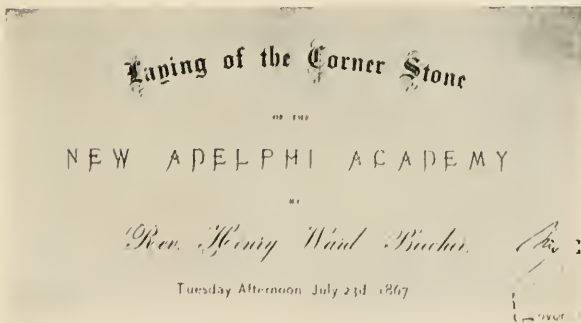 Laying of the Corner Stone
OF THE
NEW ADELPHI ACADEMY
BY
Rev. Henry Ward Beecher.
Tuesday Afternoon July 23d 1867